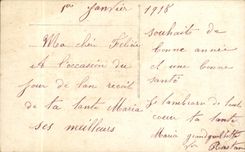 1er Janvier 1918
Ma chère Félicie
A l'occasion du
jour de l'an reçoit
de ta tante Maria
ses meilleurs
souhaits de
bonne année
et une bonne
santé
Je t'embrasse de tout
cœur ta tante
Maria